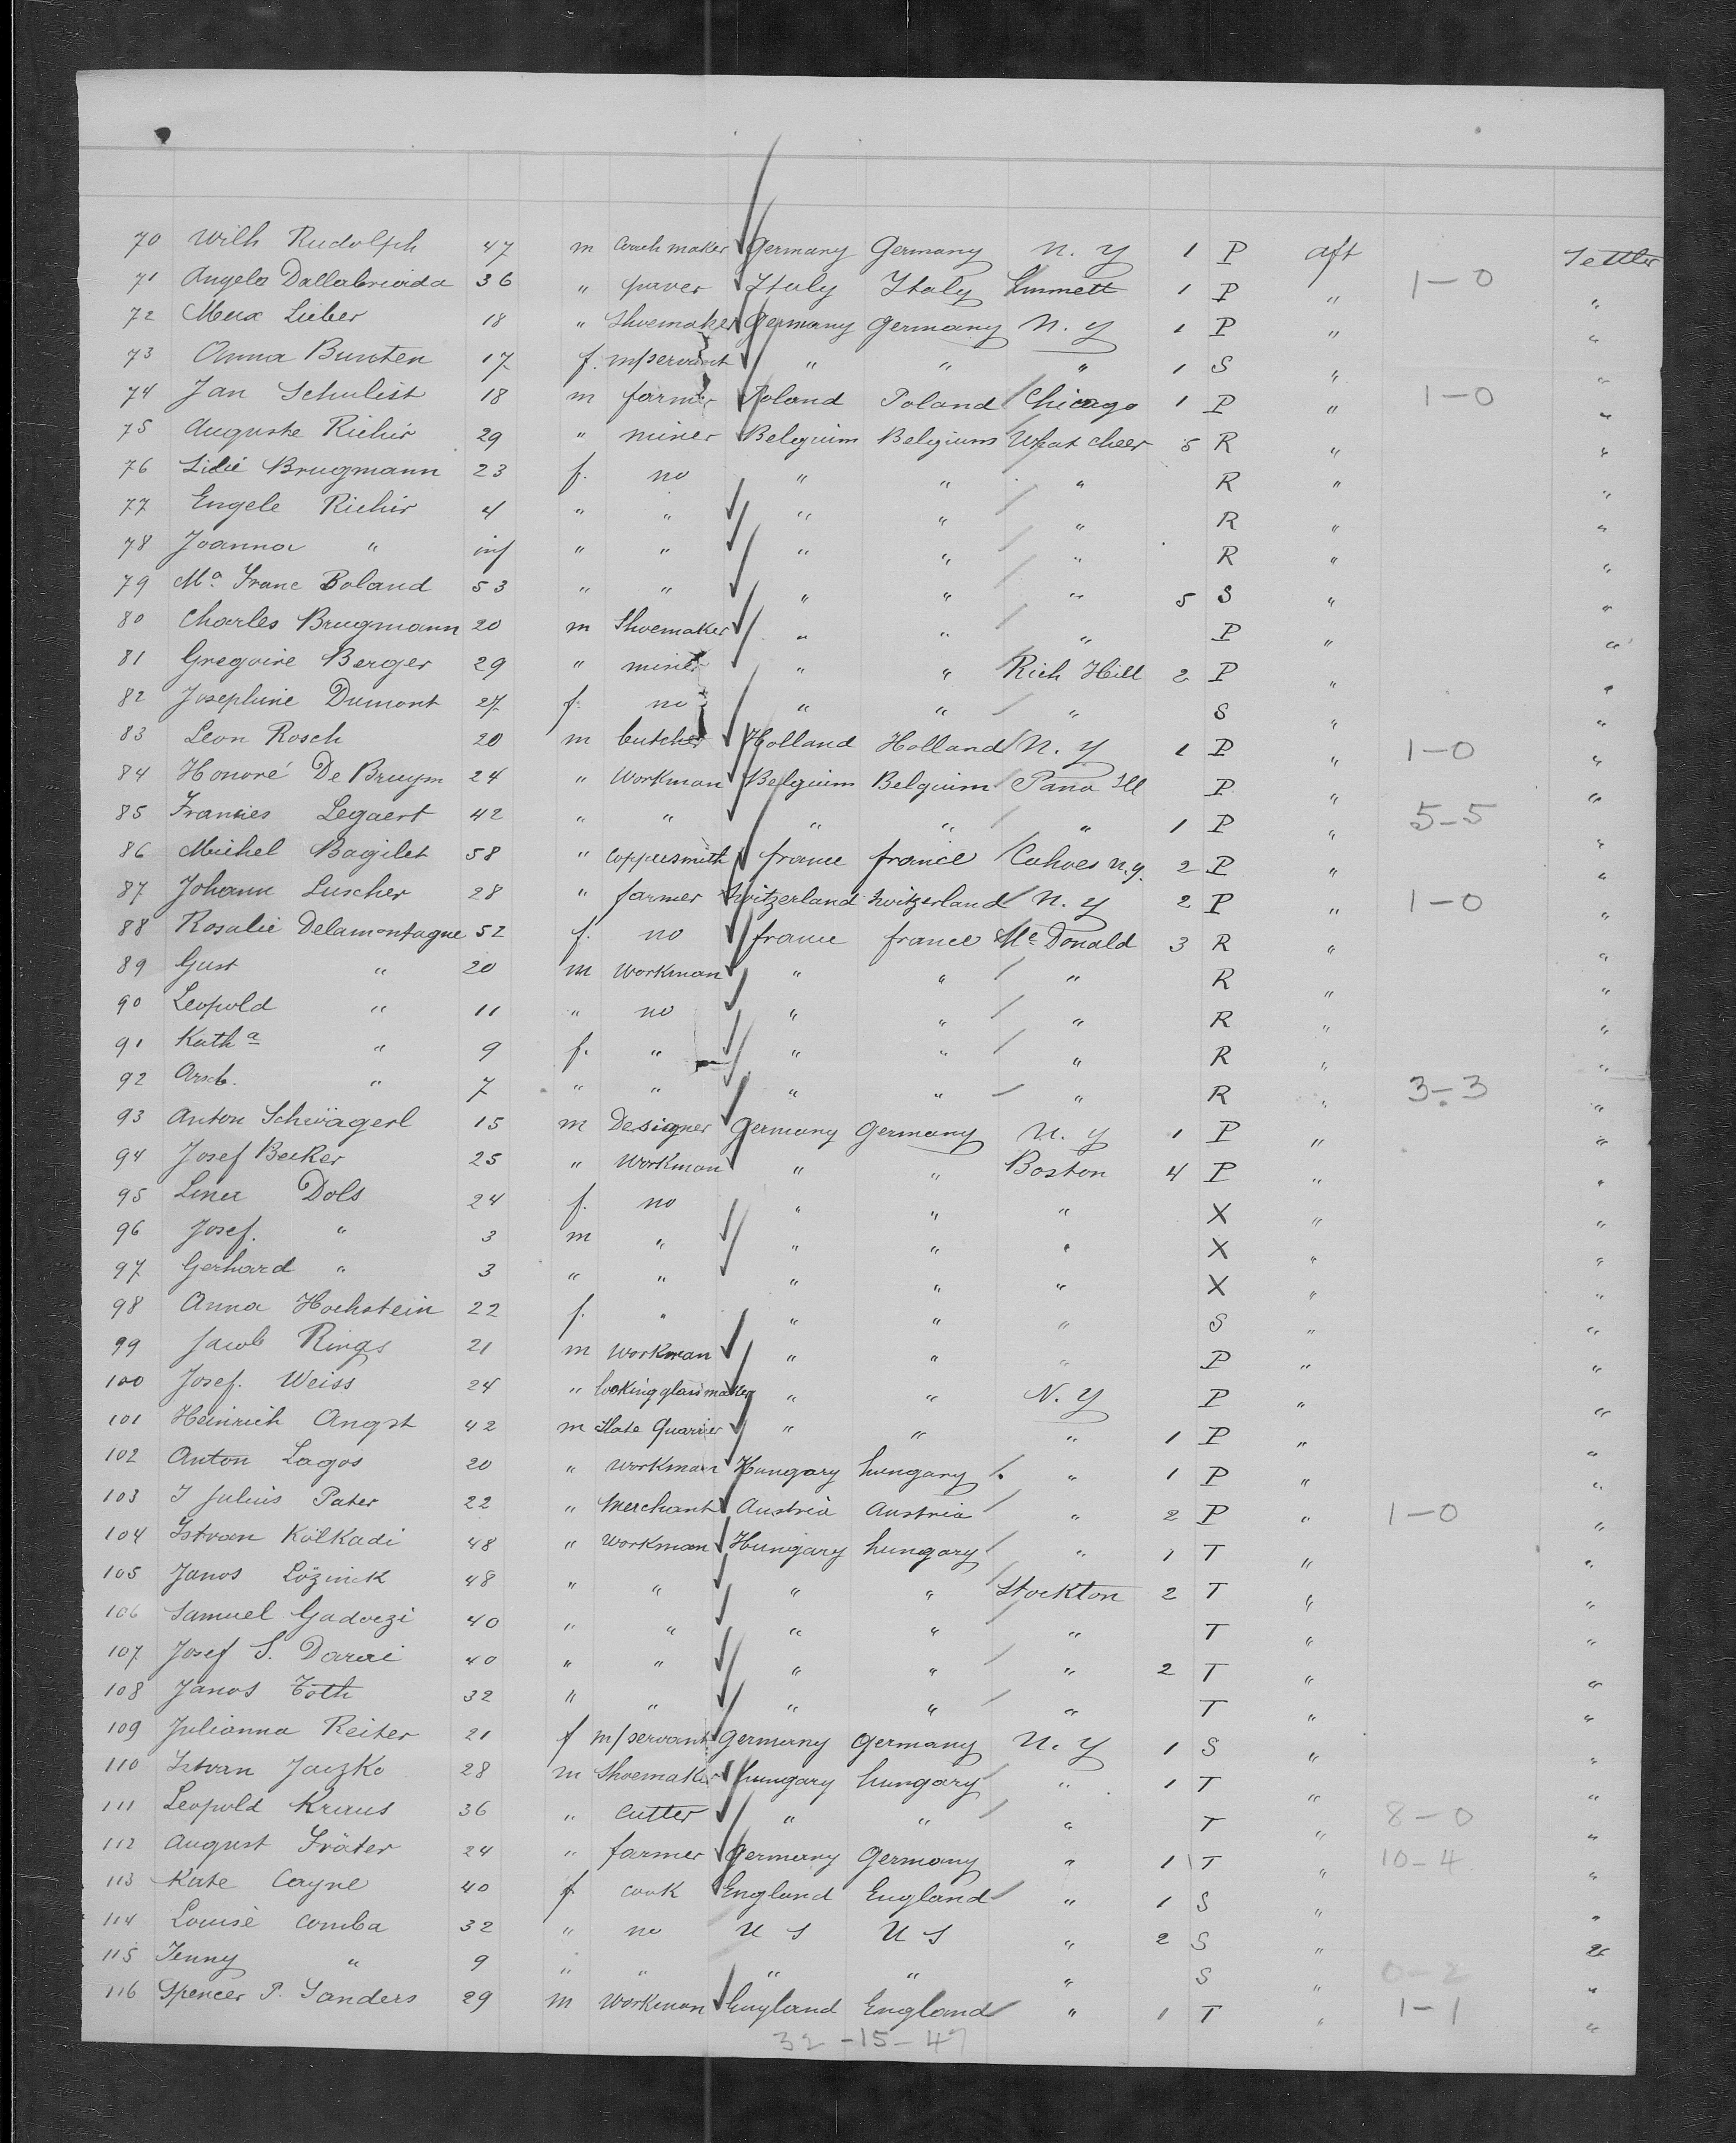 70 Wilh Rudolph 47 m Coach maker Germany Germany N. Y 1 P aft Settler
71 Angelo Dallabrida 36 " paver Italy Italy Emmett 1 P " 1-0 "
72 Max Lieber 18 " Shoemaker Germany Germany N. Y 1 P " "
73 Anna Bunten 17 f. m/servant " " " 1 S " "
74 Jan Schulist 18 m farmer Poland Poland Chicago 1 P " 1-0 "
75 Auguste Richir 29 " miner Belgium Belgium What cheer 5 R " "
76 Lidie Brugmann 23 f. no " " " R " "
77 Engele Richir 4 " " " " " R " "
78 Joanna " inf " " " " " R " "
79 Ma Franc Boland 53 " " " " " 5 S " "
80 Charles Brugmann 20 m Shoemaker " " " P " "
81 Gregoire Berger 29 " miner " " Rich Hill 2 P " "
82 Josephine Dumont 27 f. no " " " S " "
83 Leon Rosch 20 m butcher Holland Holland N. Y 1 P " 1-0 "
84 Honoré De Bruym 24 " Workman Belgium Belgium Pana Ill P " "
85 Francies Legaert 42 " " " " " 1 P " 5-5 "
86 Michel Bagilet 58 " Coppersmith france france Cohoes n.y. 2 P " "
87 Johann Luscher 28 " farmer Switzerland Switzerland N. Y 2 P " 1-0 "
88 Rosalie Delamontagne 52 f. no france france Mc Donald 3 R " "
89 Gust " 20 m Workman " " " R " "
90 Leopold " 11 " no " " " R " "
91 Katha " 9 f. " " " " R " "
92 " 7 " " " " " R " 3-3 "
93 Anton Schwägerl 15 m Designer Germany Germany N. Y 1 P " "
94 Josef Becker 25 " Workman " " Boston 4 P " "
95 Lena Dols 24 f. no " " " X " "
96 Josef. " 3 m " " " " X " "
97 Gerhard " 3 " " " " " X " "
98 Anna Hochstein 22 f. " " " " S " "
99 Jacob Rings 21 m Workman " " " P " "
100 Josef. Weiss 24 " looking glass maker " " N. Y P " "
101 Heinrich Angst 42 m Slate Quarrier " " " 1 P " "
102 Anton Lagos 20 " workman Hungary hungary " 1 P " "
103 J Julius Pater 22 " Merchant Austria Austria " 2 P " 1-0 "
104 Istvan Kölkadi 48 " Workman Hungary hungary " 1 T " "
105 Janos Lözinik 48 " " " " Stockton 2 T " "
106 Samuel Gadoczi 40 " " " " " T " "
107 Josef S. Darai 40 " " " " " 2 T " "
108 Janos Toth 32 " " " " " T " "
109 Julianna Reiter 21 f m/servant Germany Germany N. Y 1 S " "
110 Istvan Jaczko 28 m Shoemaker hungary hungary " 1 T " "
111 Leopold Kraus 36 " Cutter " " " T " 8-0 "
112 August Fräter 24 " farmer Germany Germany " 1 T " 10-4 "
113 Kate Cayne 40 f cook England England " 1 S " "
114 Louise Comba 32 " no U S U S " 2 S " "
115 Jenny " 9 " " " " " S " 0-2 "
116 Spencer P. Sanders 29 m Workman England England " 1 T " 1-1 "
32-15-47